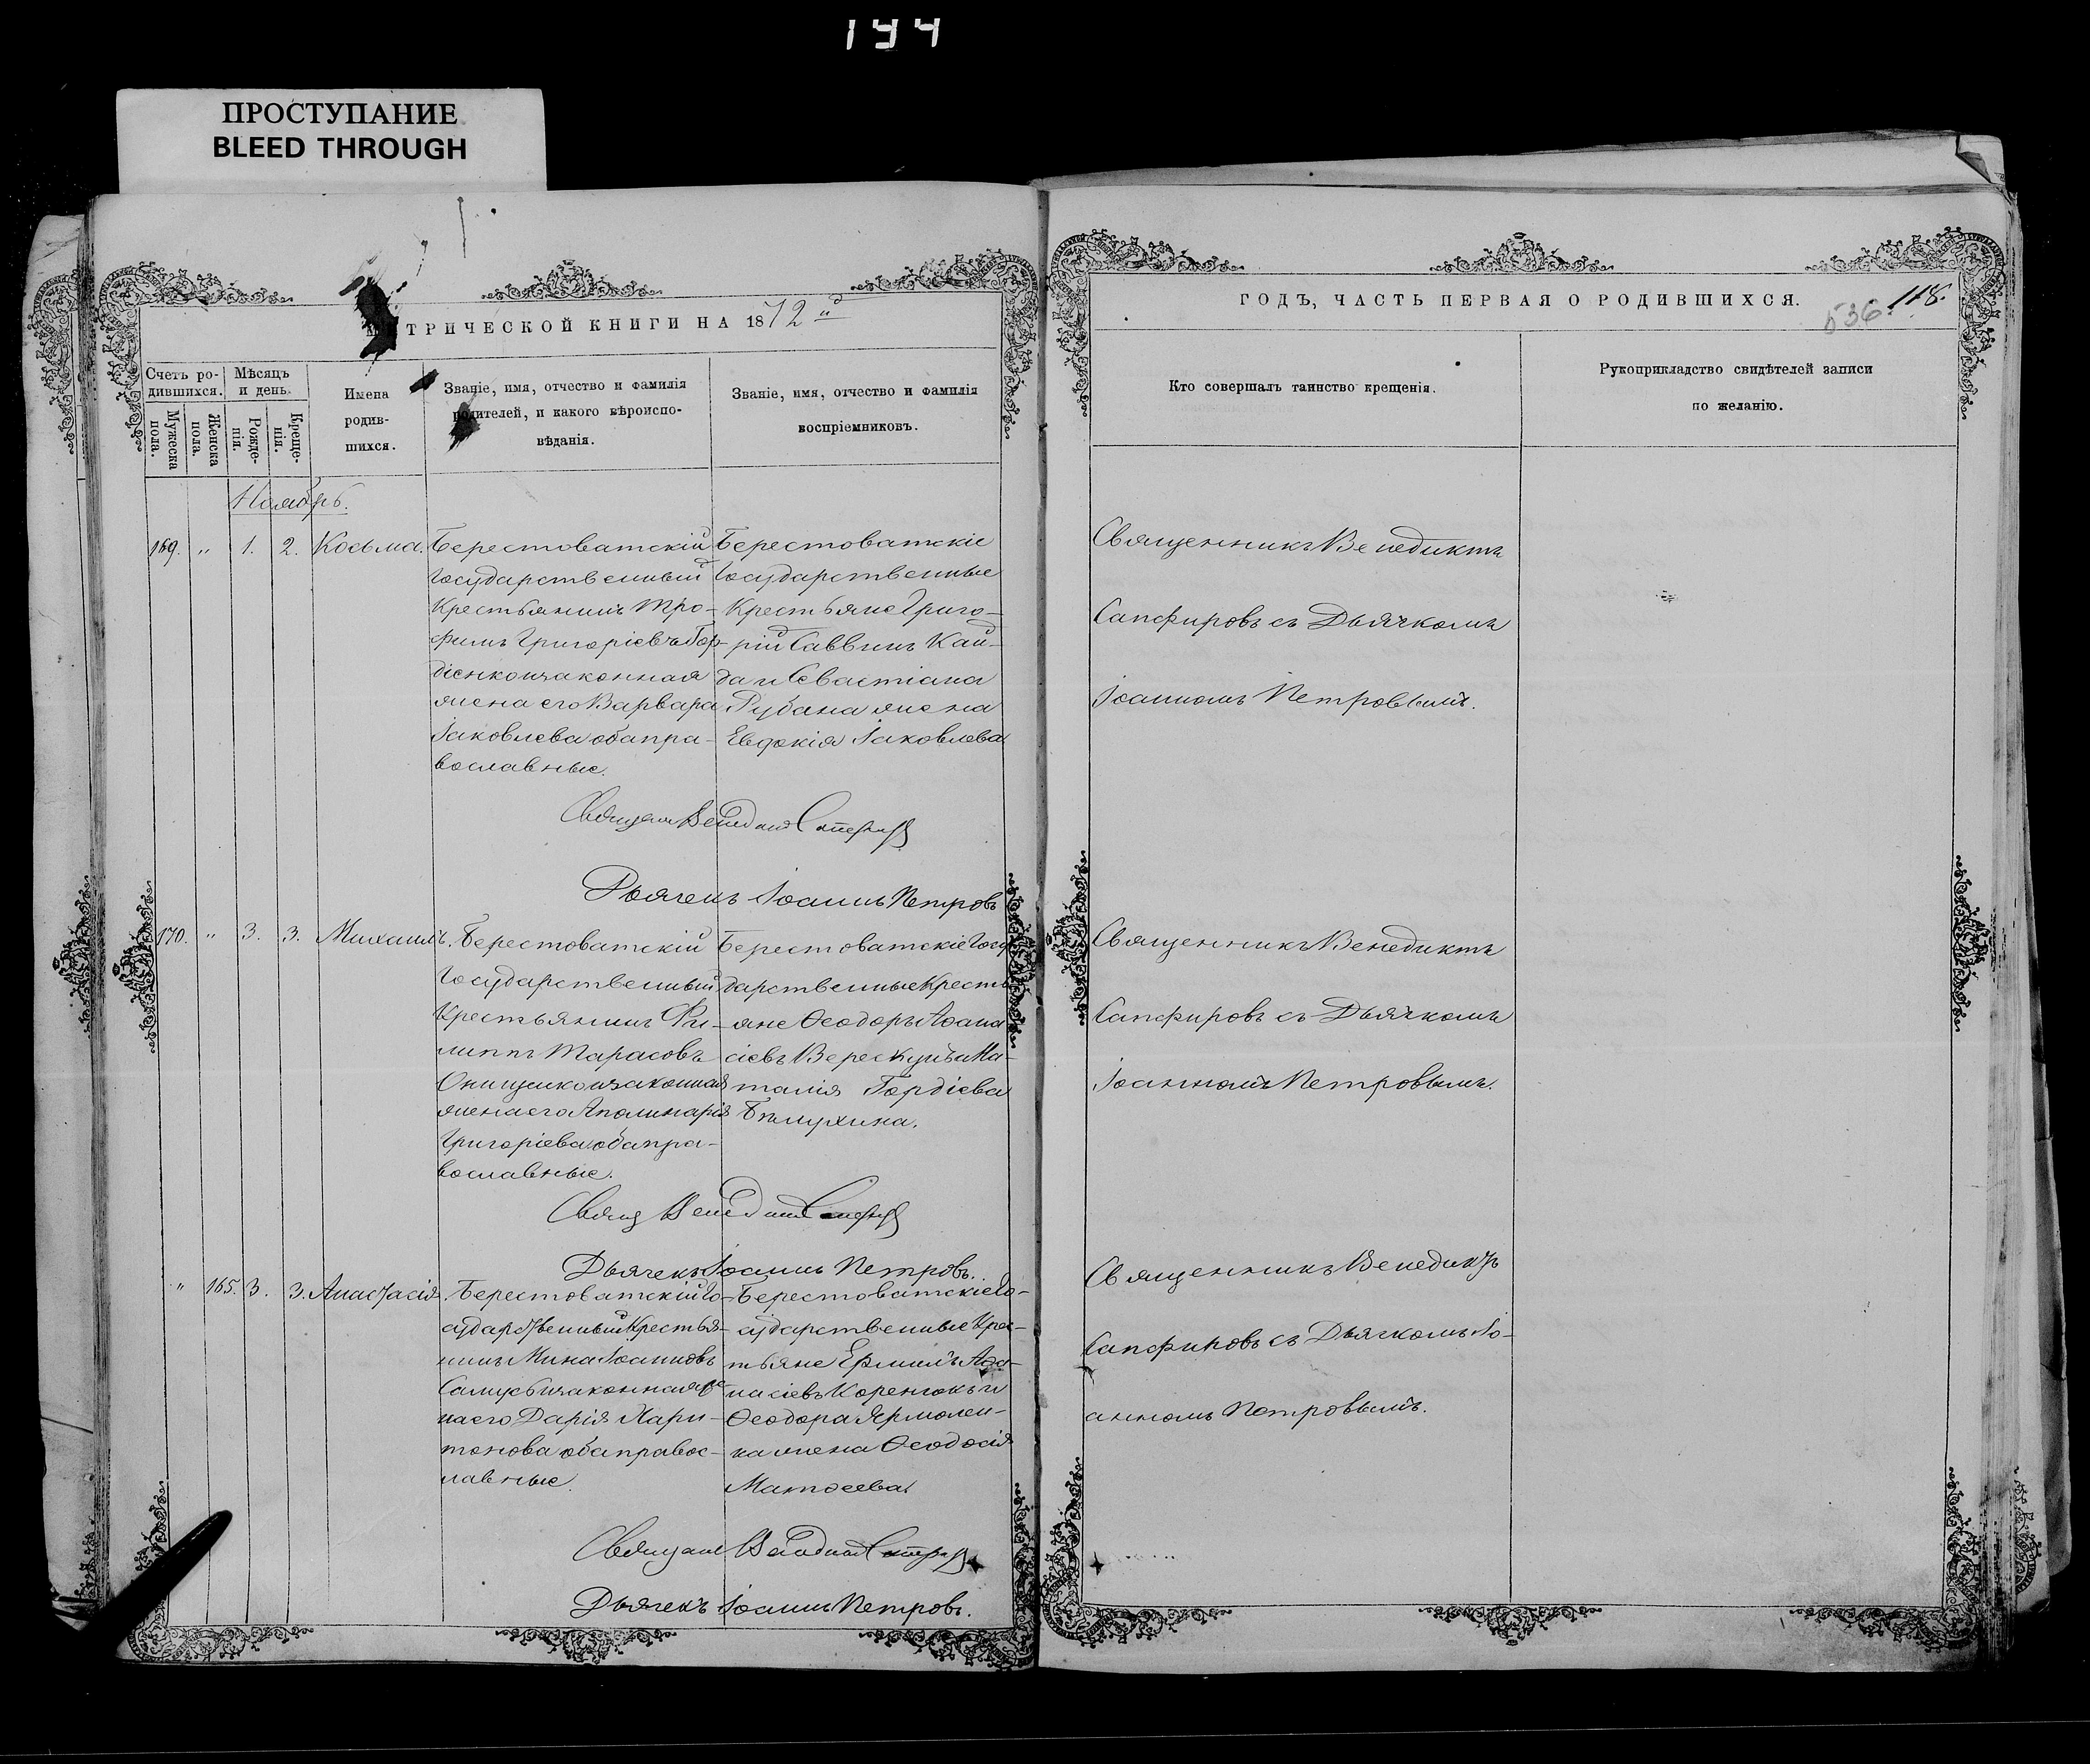 194
ПРОСТУПАНИЕ
BLEED THROUGH
ТРИЧЕСКОЙ КНИГИ НА 1872й
ГОДЪ, ЧАСТЬ ПЕРВАЯ О РОДИВШИХСЯ.
536. 118.
Счетъ ро-
дившихся.
Мужеска
пола.
Женска
пола.
Мѣсяцъ
и день.
Рожде-
нія.
Креще-
нія.
Имена
родив-
шихся.
Званіе, имя, отчество и фамилія
родителей, и какого вѣроиспо-
вѣданія.
Званіе, имя, отчество и фамилія
воспріемниковъ.
Кто совершалъ таинство крещенія.
Рукоприкладство свидѣтелей записи
по желанію.
Ноябрь.
169. „ 1. 2. Косьма.
Берестоватскій
Государственный
Крестьянинъ Тро-
фимъ Григорієвъ Гор-
дієнко и законная
жена его Варвара
Іаковлева оба пра-
вославные.
Берестоватскіе
Государственные
Крестьяне Григо-
рій Саввинъ Кай-
да и Севастіана
Рубана жена
Евдокія Іаковлева
Священникъ Венедиктъ
Сапфировъ съ Дьячкомъ
Іоанномъ Петровымъ.
Дьячекъ Іоаннъ Петровъ
170. „ 3. 3. Михаилъ.
Берестоватскій
Государственный
Крестьянинъ Фи-
липпъ Тарасовъ
Онищенко и законная
жена его Аполинарія
Григорієва оба пра-
вославные.
Берестоватскіе Госу
дарственные Кресть
яне Ѳеодоръ Аѳана
сіевъ Верескунъ и На-
талія Гордієва
Бѣлухина.
Священникъ Венедиктъ
Сапфировъ съ Дьячкомъ
Іоанномъ Петровымъ.
Дьячекъ Іоаннъ Петровъ.
„ 165. 3. 3. Анастасія.
Берестоватскій Го-
сударственный Крестья-
нинъ Мина Іоанновъ
Самусь и законная же-
на его Дарія Хари-
тонова оба правос-
лавные.
Берестоватскіе Го-
сударственные Крес-
тьяне Ермилъ Аѳа-
насіевъ Коренюкъ и
Ѳеодора Ярмолен-
ка жена Ѳеодосія
Матѳеева
Священникъ Венедиктъ
Сапфировъ съ Дьячкомъ Іо-
анномъ Петровымъ.
Дьячекъ Іоаннъ Петровъ.